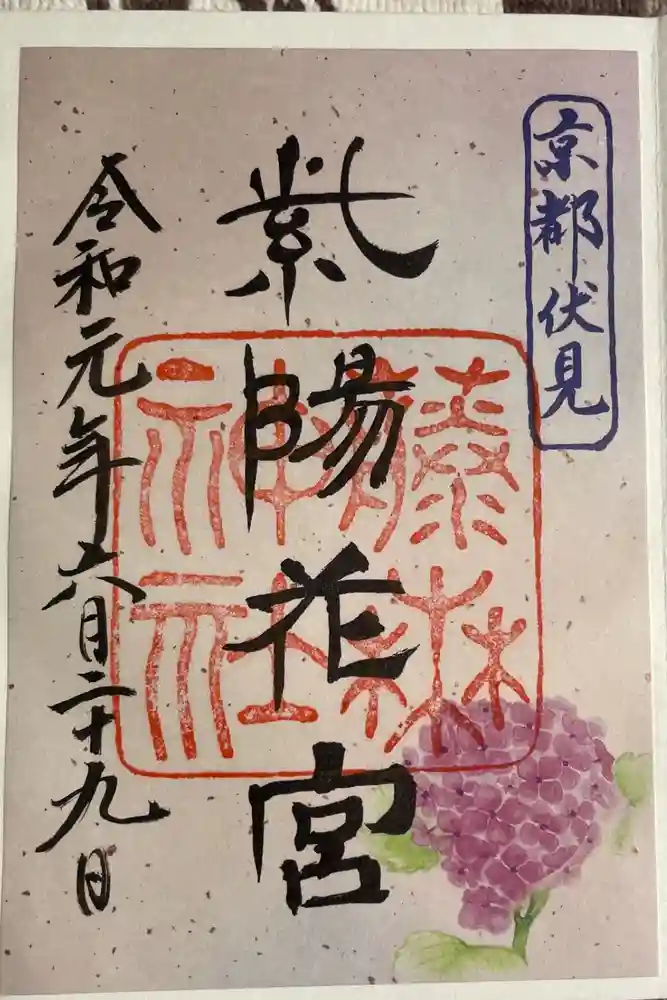 京都伏見
紫陽花宮
藤森
神社
令和元年六月二十九日